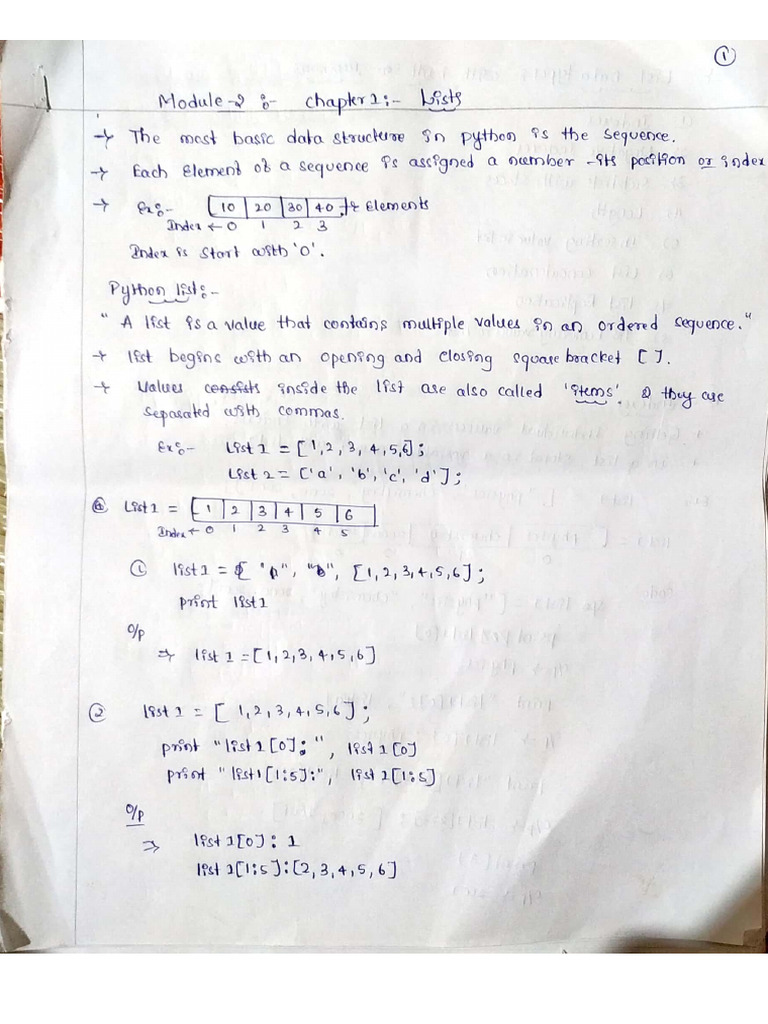 ①
Module-2 :- Chapter 1:- Lists
→ The most basic data structure in python is the sequence.
→ Each Element of a sequence is assigned a number -its position or index
→ Ex:- [10 | 20 | 30 | 40] → Elements
Index ← 0 1 2 3
Index is start with '0'.
Python list:-
" A list is a value that contains multiple values in an ordered sequence."
→ list begins with an opening and closing square bracket [ ].
→ Values consists inside the list are also called 'items'. & they are
separated with commas.
Ex:- List 1 = [1,2,3, 4,5,6];
List 2 = ['a', 'b', 'c', 'd'];
@ List 1 = [1 | 2 | 3 | 4 | 5 | 6]
Index ← 0 1 2 3 4 5
① list 1 = [ "a", "b", [1,2,3,4,5,6];
print list1
O/p
⇒ list 1 = [1,2,3,4,5,6]
② list 1 = [ 1,2,3,4,5,6];
print "list 1 [0]:", list 1 [0]
print "list1[1:5]:", list 1 [1:5]
O/p
⇒ list 1 [0] : 1
list 1 [1:5] : [2,3,4,5,6]